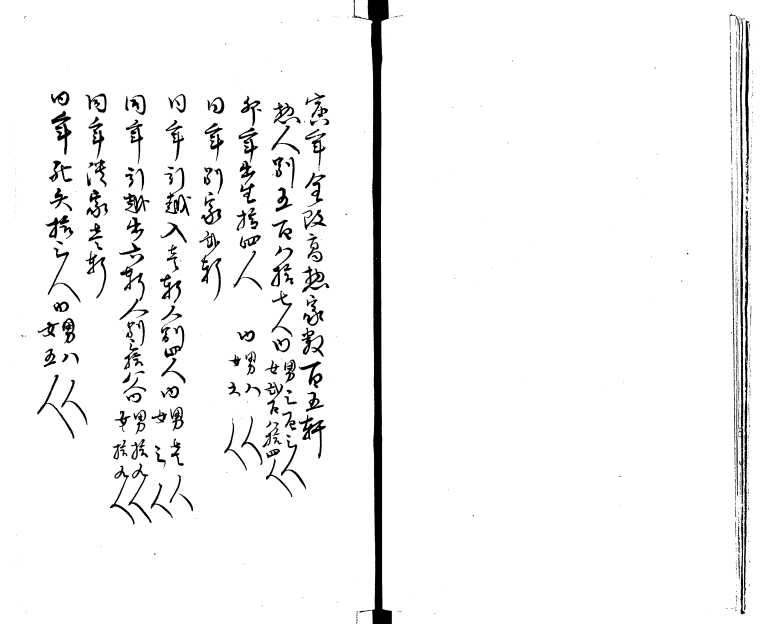 寅年全改高惣家数百五軒
惣人別五百八拾七人内男三百三人女弐百八拾四人
卯年出生拾四人 内男八人女六人
同年別家弐軒
同年引越入壱軒人別四人内男壱人女三人
同年引越出六軒人別 内男拾九人女拾九人
同年潰家壱軒
同年死失拾三人内男八人女五人